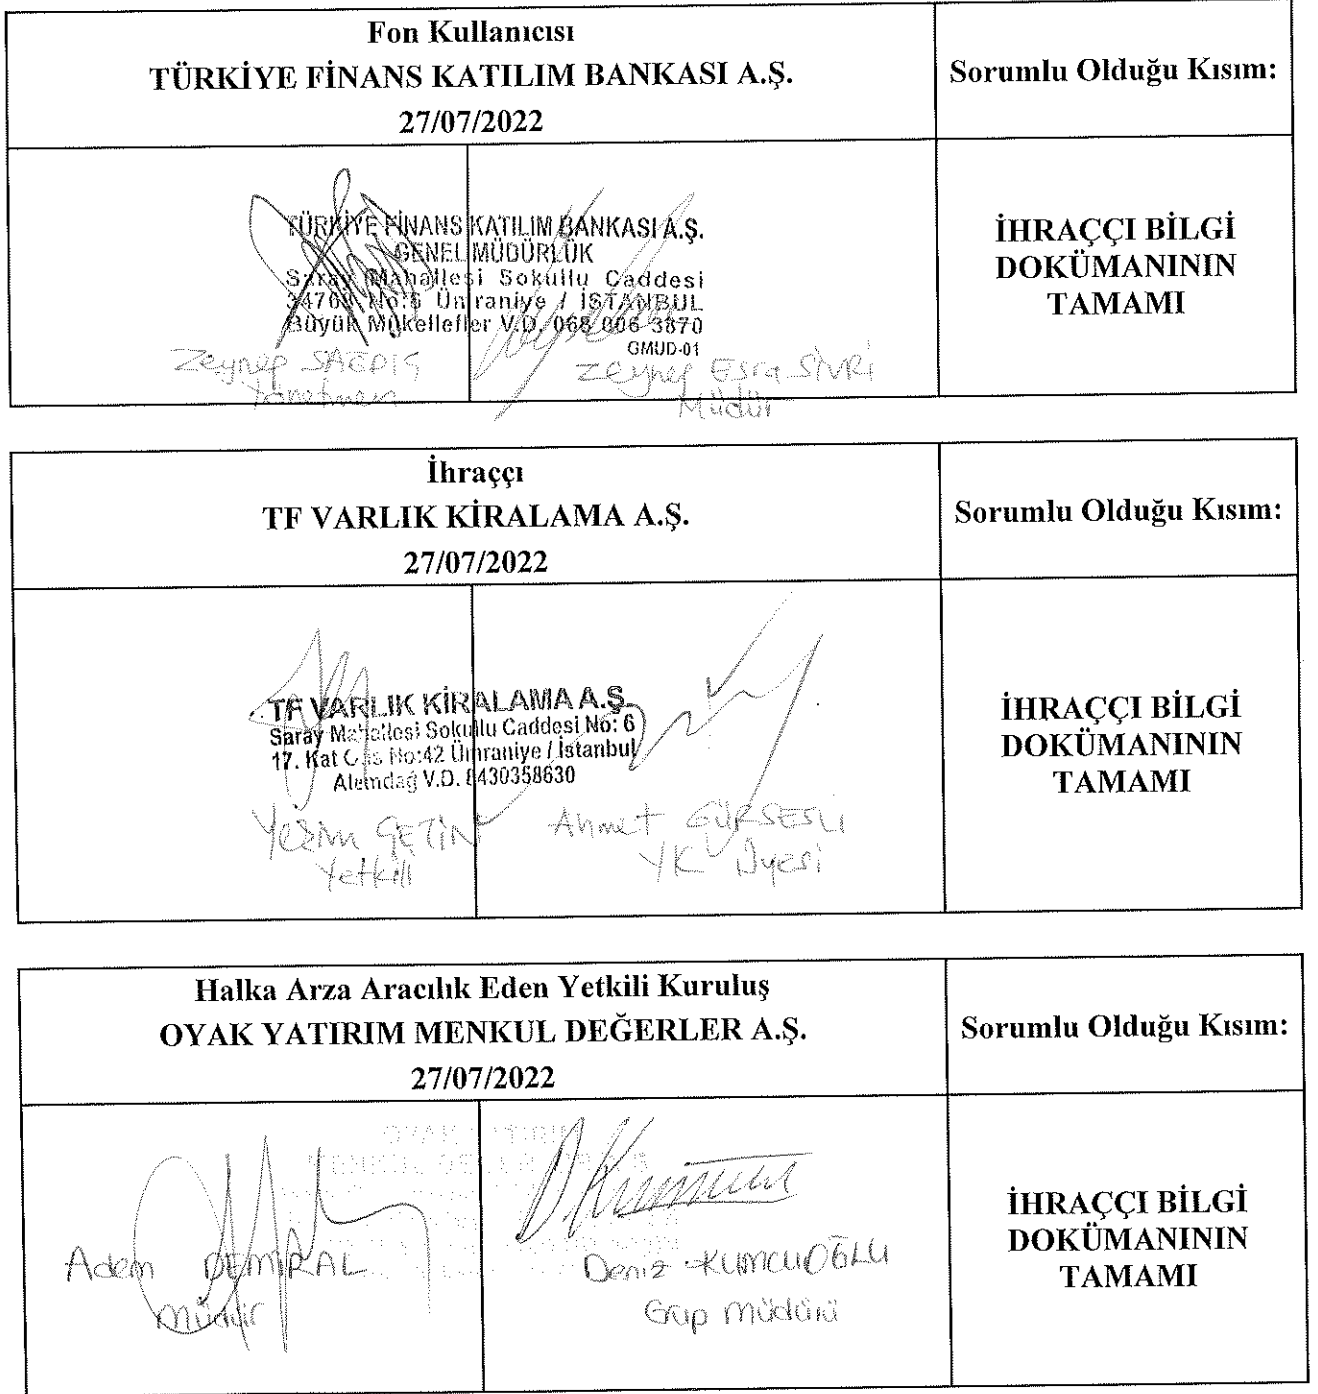 Fon Kullanıcısı
TÜRKİYE FİNANS KATILIM BANKASI A.Ş.
27/07/2022
Sorumlu Olduğu Kısım:
TÜRKİYE FİNANS KATILIM BANKASI A.Ş.
GENEL MÜDÜRLÜK
Saray Mahallesi Sokullu Caddesi
34768 No:6 Ümraniye / İSTANBUL
Büyük Mükellefler V.D. 068 006 3870
GMUD-01
Zeynep
Yönetmen
Zeynep Esra SİVRİ
Müdür
İHRAÇÇI BİLGİ
DOKÜMANININ
TAMAMI
İhraççı
TF VARLIK KİRALAMA A.Ş.
27/07/2022
Sorumlu Olduğu Kısım:
TF VARLIK KİRALAMA A.Ş.
Saray Mahallesi Sokullu Caddesi No: 6
17. Kat Ofis No:42 Ümraniye / İstanbul
Alemdağ V.D. 8430358630
Yeşim ÇETİN
Yetkili
Ahmet GÜRSESLİ
YK Üyesi
İHRAÇÇI BİLGİ
DOKÜMANININ
TAMAMI
Halka Arza Aracılık Eden Yetkili Kuruluş
OYAK YATIRIM MENKUL DEĞERLER A.Ş.
27/07/2022
Sorumlu Olduğu Kısım:
OYAK YATIRIM
MENKUL DEĞERLER A.Ş.
Adem DEMİRAL
Müdür
Deniz KUMCUOĞLU
Grup Müdürü
İHRAÇÇI BİLGİ
DOKÜMANININ
TAMAMI